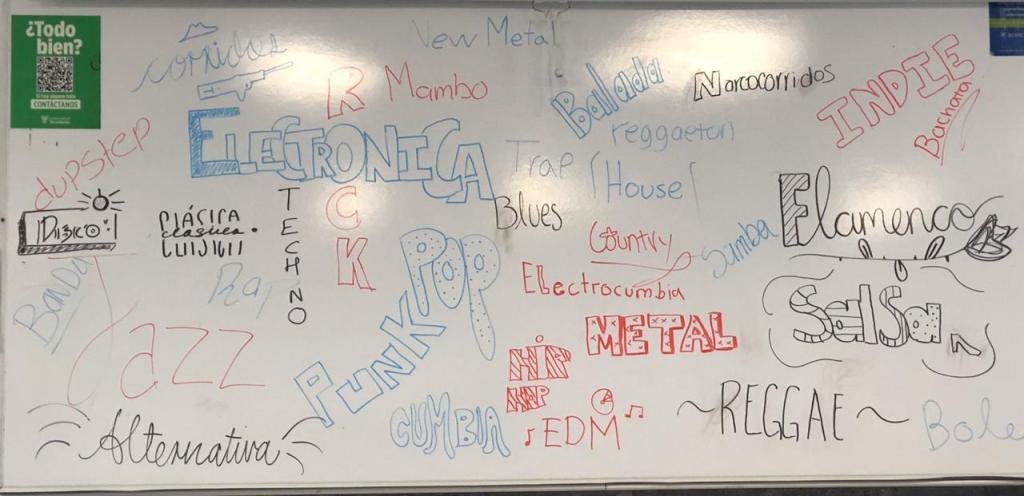 ¿Todo
bien?
CONTÁCTANOS
Corridos
New Metal
Mambo
Balada
Narcocorridos
INDIE
Bachata
ELECTRONICA
reggaeton
dupstep
Trap
House
ROCK
TECHNO
DISCO
CLÁSICA
clásica
Blues
Flamenco
Country
Sumba
Banda
Rap
POP
Electrocumbia
Salsa
METAL
JAZZ
PUNK
HIP
HOP
EDM
CUMBIA
~REGGAE~
Alternativa
Bole